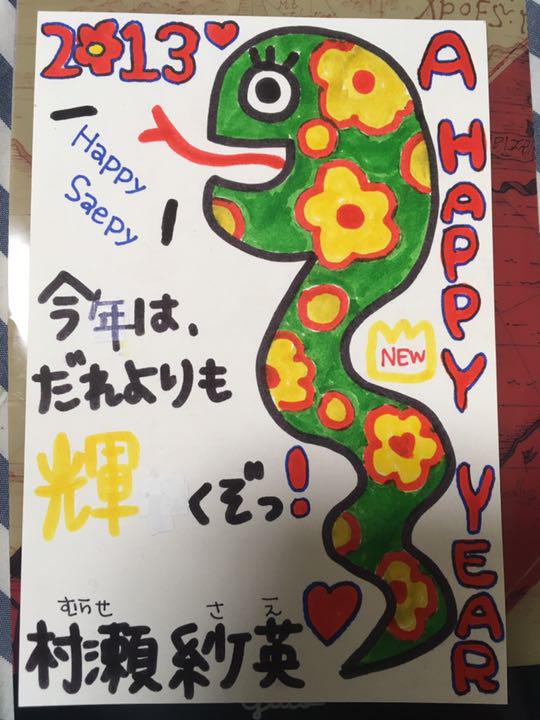 2013
A HAPPY YEAR
NEW
Happy
Saepy
今年は、
だれよりも
輝くぞっ!
むらせ さえ
村瀬 紗英